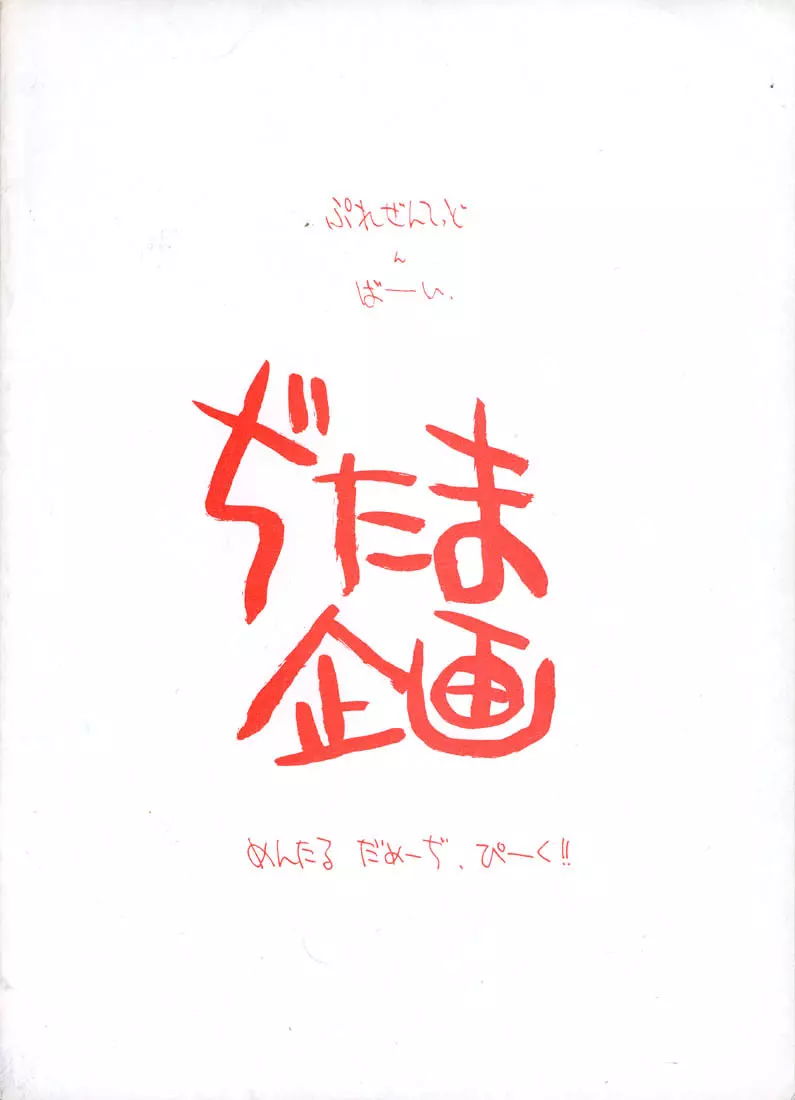 ぷれぜんてぃど
ん
ばーい.
ぢたま
企画
めんたる だめーぢ、ぴーく!!